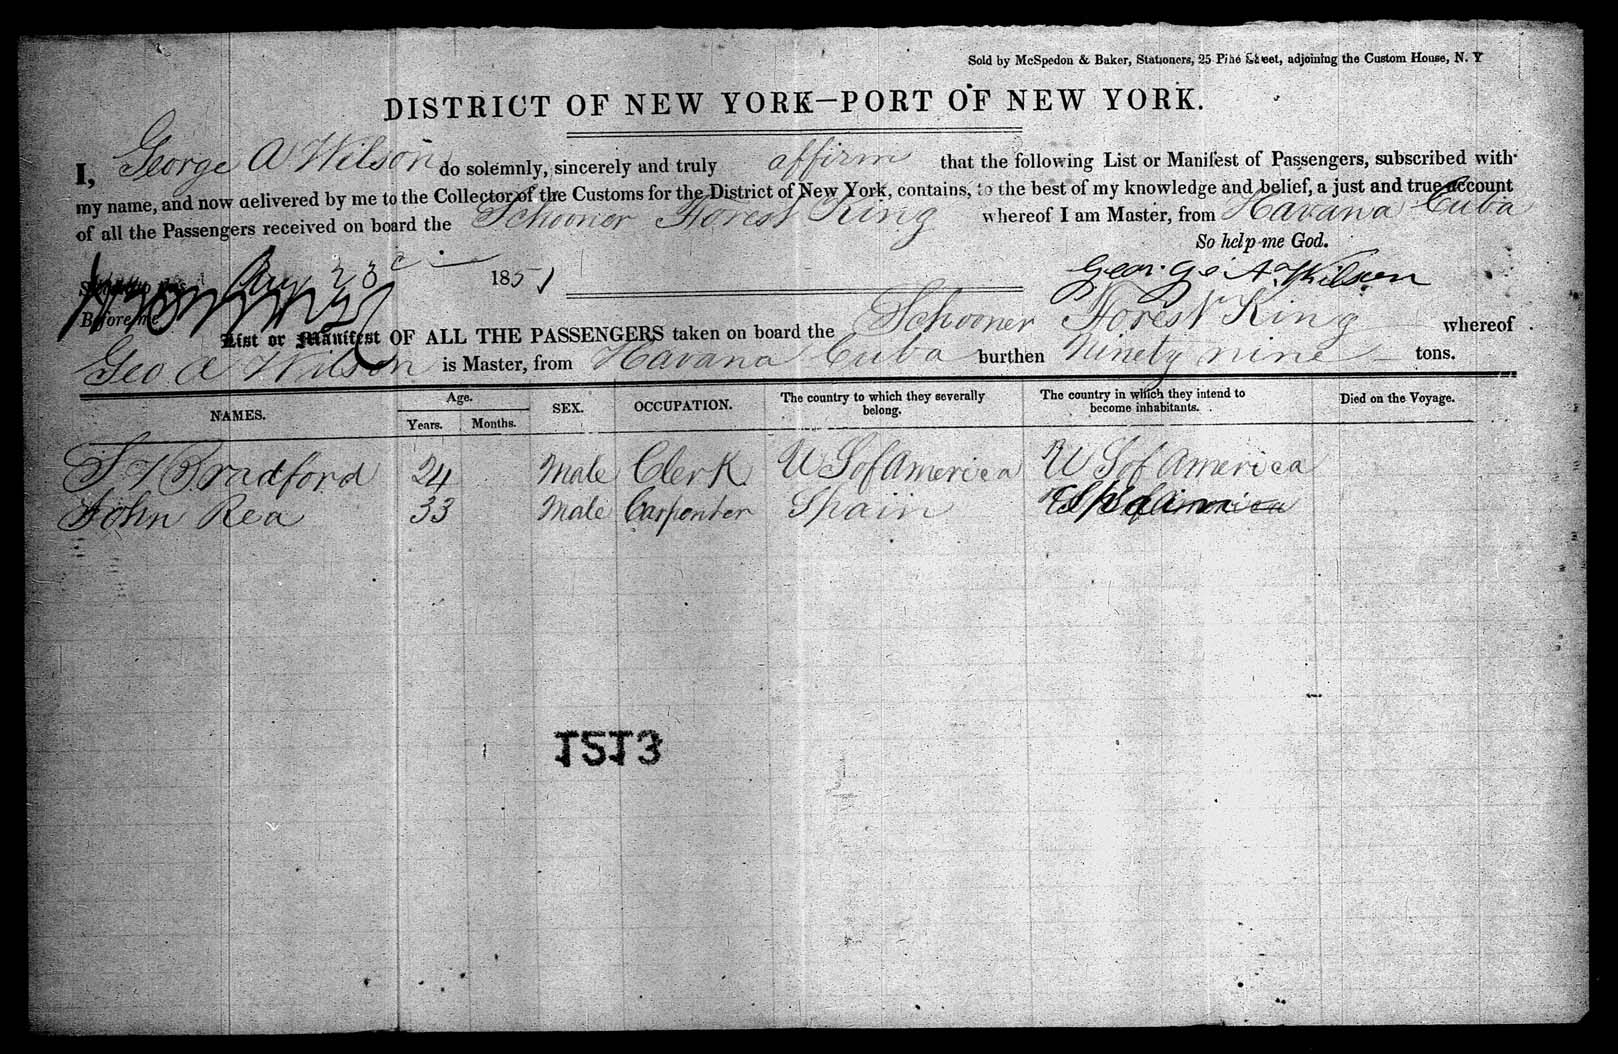 Sold by McSpedon & Baker, Stationers, 25 Pine Street, adjoining the Custom House, N. Y
DISTRICT OF NEW YORK—PORT OF NEW YORK.
I, George A Wilson do solemnly, sincerely and truly affirm that the following List or Manifest of Passengers, subscribed with
my name, and now delivered by me to the Collector of the Customs for the District of New York, contains, to the best of my knowledge and belief, a just and true account
of all the Passengers received on board the Schooner Forest King whereof I am Master, from Havana Cuba
So help me God.
Aug 23 1851 George A. Wilson
Before me
List or Manifest OF ALL THE PASSENGERS taken on board the Schooner Forest King whereof
Geo A Wilson is Master, from Havana Cuba burthen Ninety nine tons.
NAMES. Age. Years. Months. SEX. OCCUPATION. The country to which they severally belong. The country in which they intend to become inhabitants. Died on the Voyage.
S T Bradford 24 Male Clerk U S of America U S of America
John Rea 33 Male Carpenter Spain Spain
1513